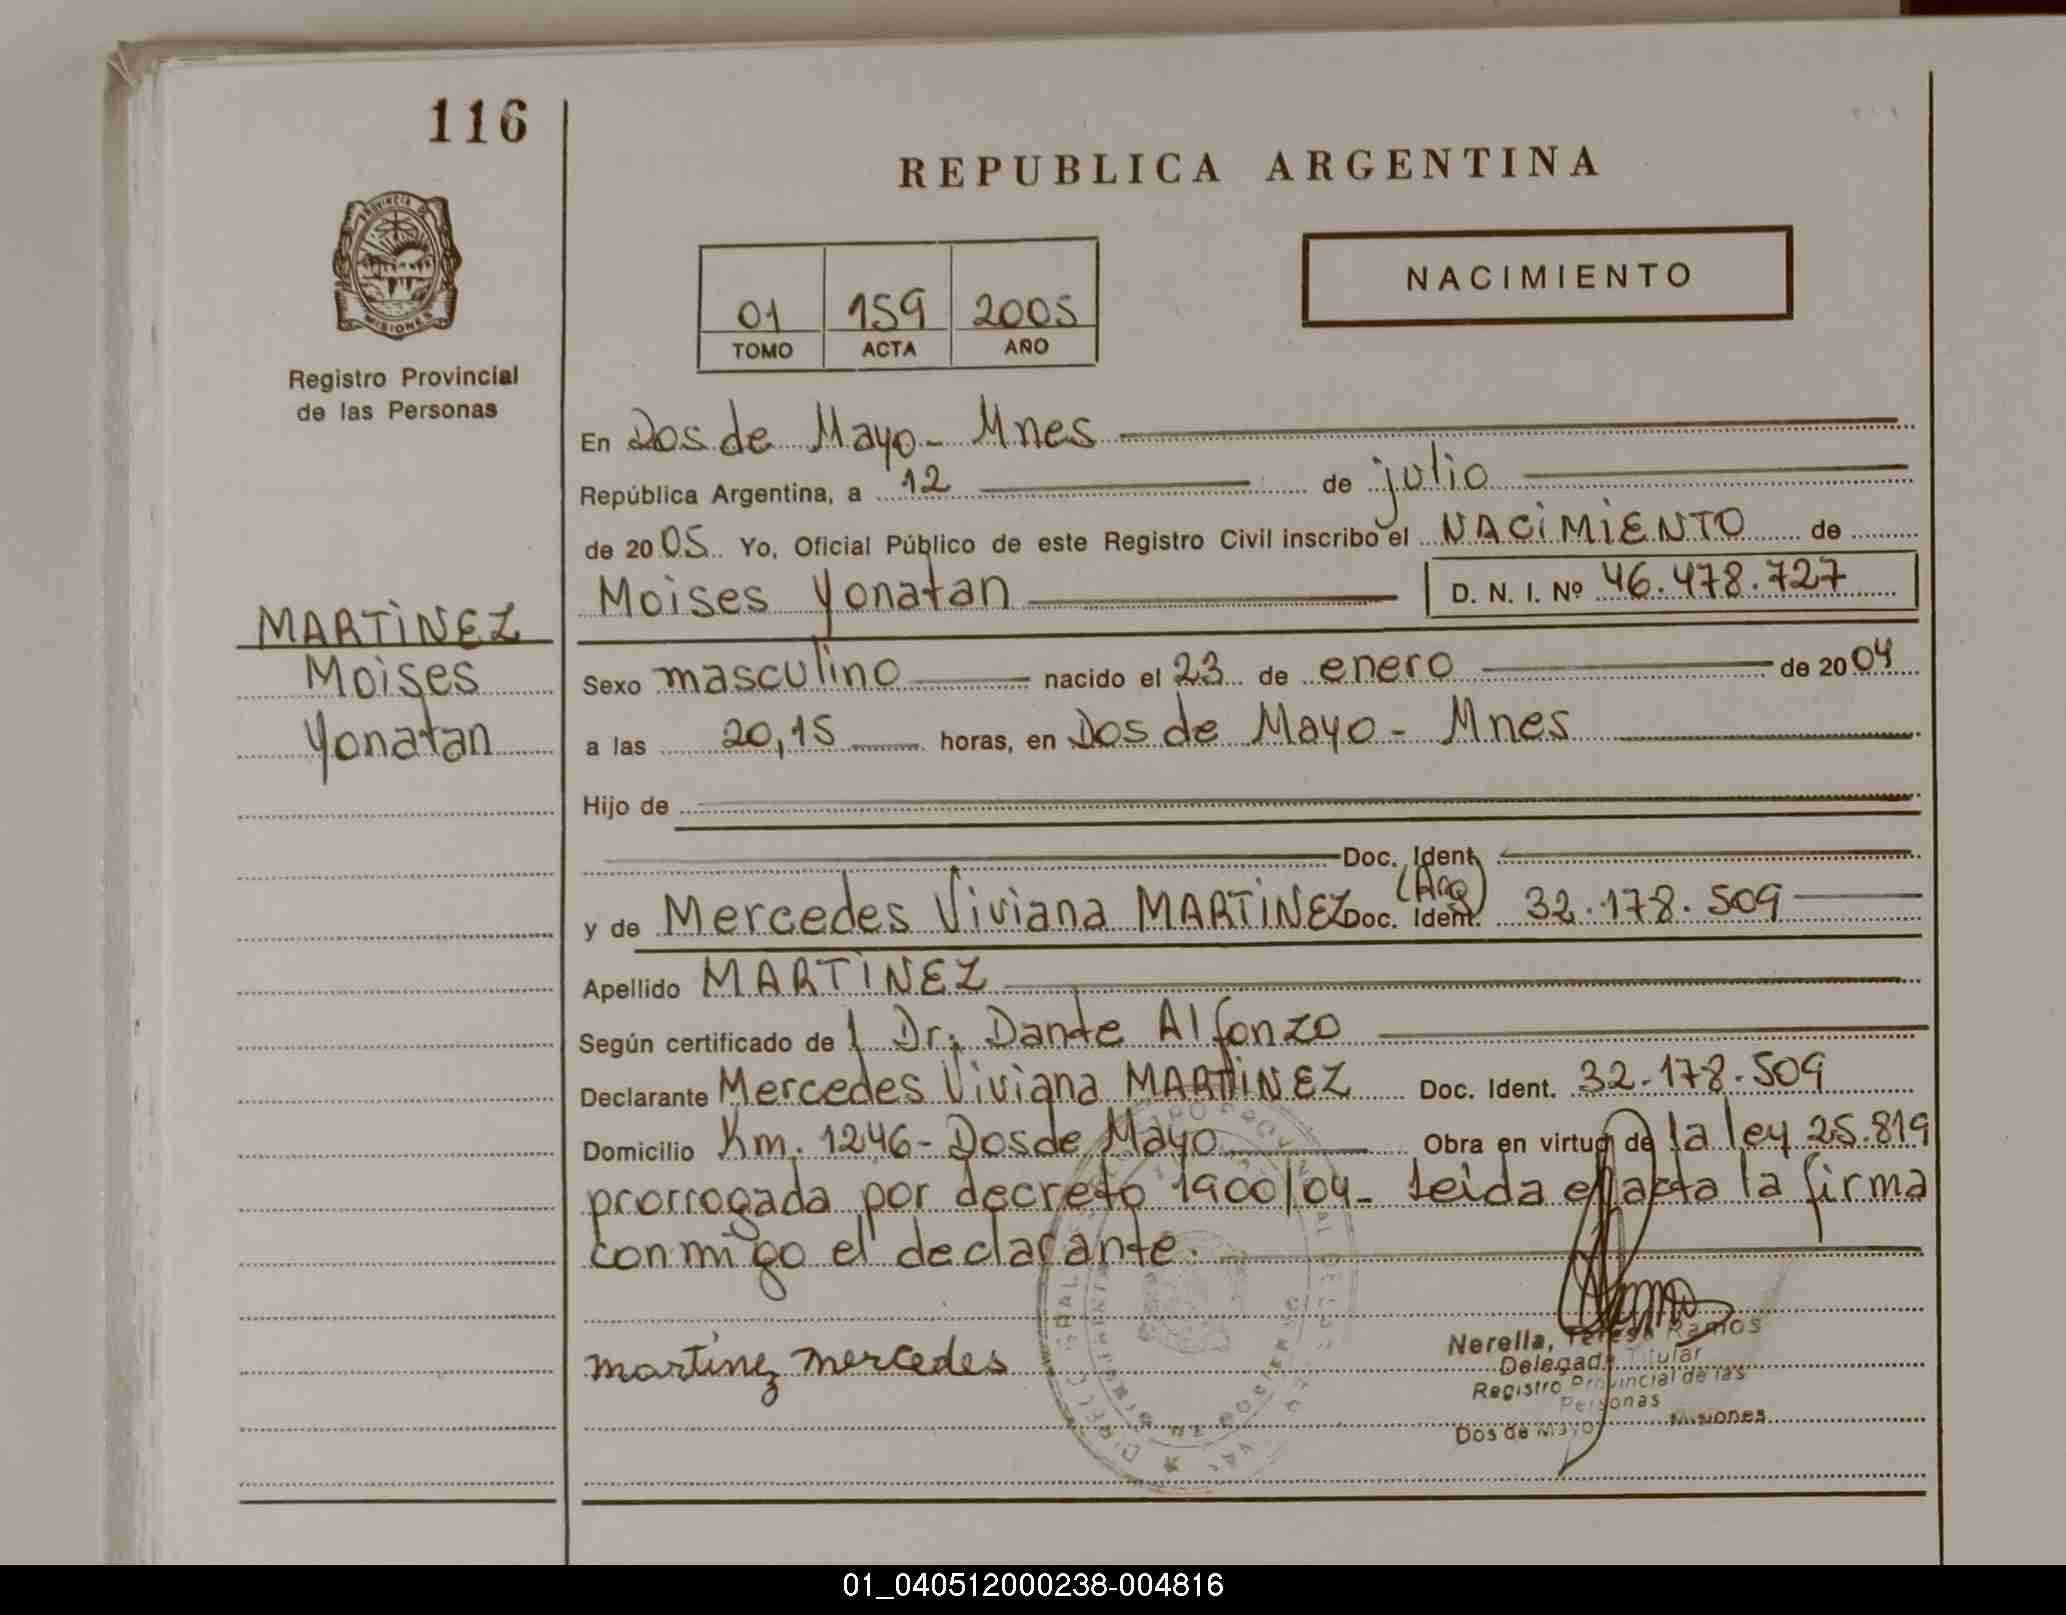 116
REPUBLICA ARGENTINA
PROVINCIA DE
MISIONES
Registro Provincial
de las Personas
NACIMIENTO
01 159 2005
TOMO ACTA AÑO
En Dos de Mayo - Mnes
República Argentina, a 12 de julio
de 2005 Yo, Oficial Público de este Registro Civil inscribo el NACIMIENTO de
Moises Yonatan D. N. I. Nº 46.478.727
MARTINEZ
Moises
Yonatan
Sexo masculino nacido el 23 de enero de 2004
a las 20,15 horas, en Dos de Mayo - Mnes
Hijo de
Doc. Ident.
y de Mercedes Viviana MARTINEZ Doc. Ident. (Arg) 32.178.509
Apellido MARTINEZ
Según certificado de Dr. Dante Alfonzo
Declarante Mercedes Viviana MARTINEZ Doc. Ident. 32.178.509
Domicilio Km. 1246 - Dos de Mayo Obra en virtud de la ley 25.819
prorrogada por decreto 1900/04 - Leida el acta la firma
conmigo el declarante.
martinez mercedes
Nerella, Teresa Ramos
Delegada Titular
Registro Provincial de las
Personas
Dos de Mayo Misiones
01_040512000238-004816